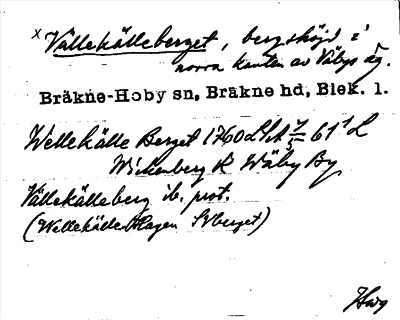 x Vällekälleberget, bergshöjd i
norra kanten av Väbys äg.
Bräkne-Hoby sn, Bräkne hd, Blek. l.
Wellekälle Berget 1760 LSA 61¹ L
Wickenberg R Wäby By
Vällekälleberg ib. prot.
(Wellekälle Hagen berget)